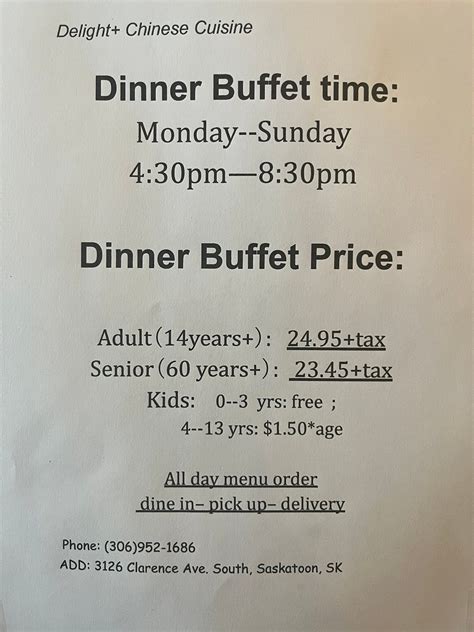 Delight+ Chinese Cuisine
Dinner Buffet time:
Monday--Sunday
4:30pm—8:30pm
Dinner Buffet Price:
Adult(14years+): 24.95+tax
Senior(60 years+): 23.45+tax
Kids: 0--3 yrs: free ;
4--13 yrs: $1.50*age
All day menu order
dine in– pick up– delivery
Phone: (306)952-1686
ADD: 3126 Clarence Ave. South, Saskatoon, SK